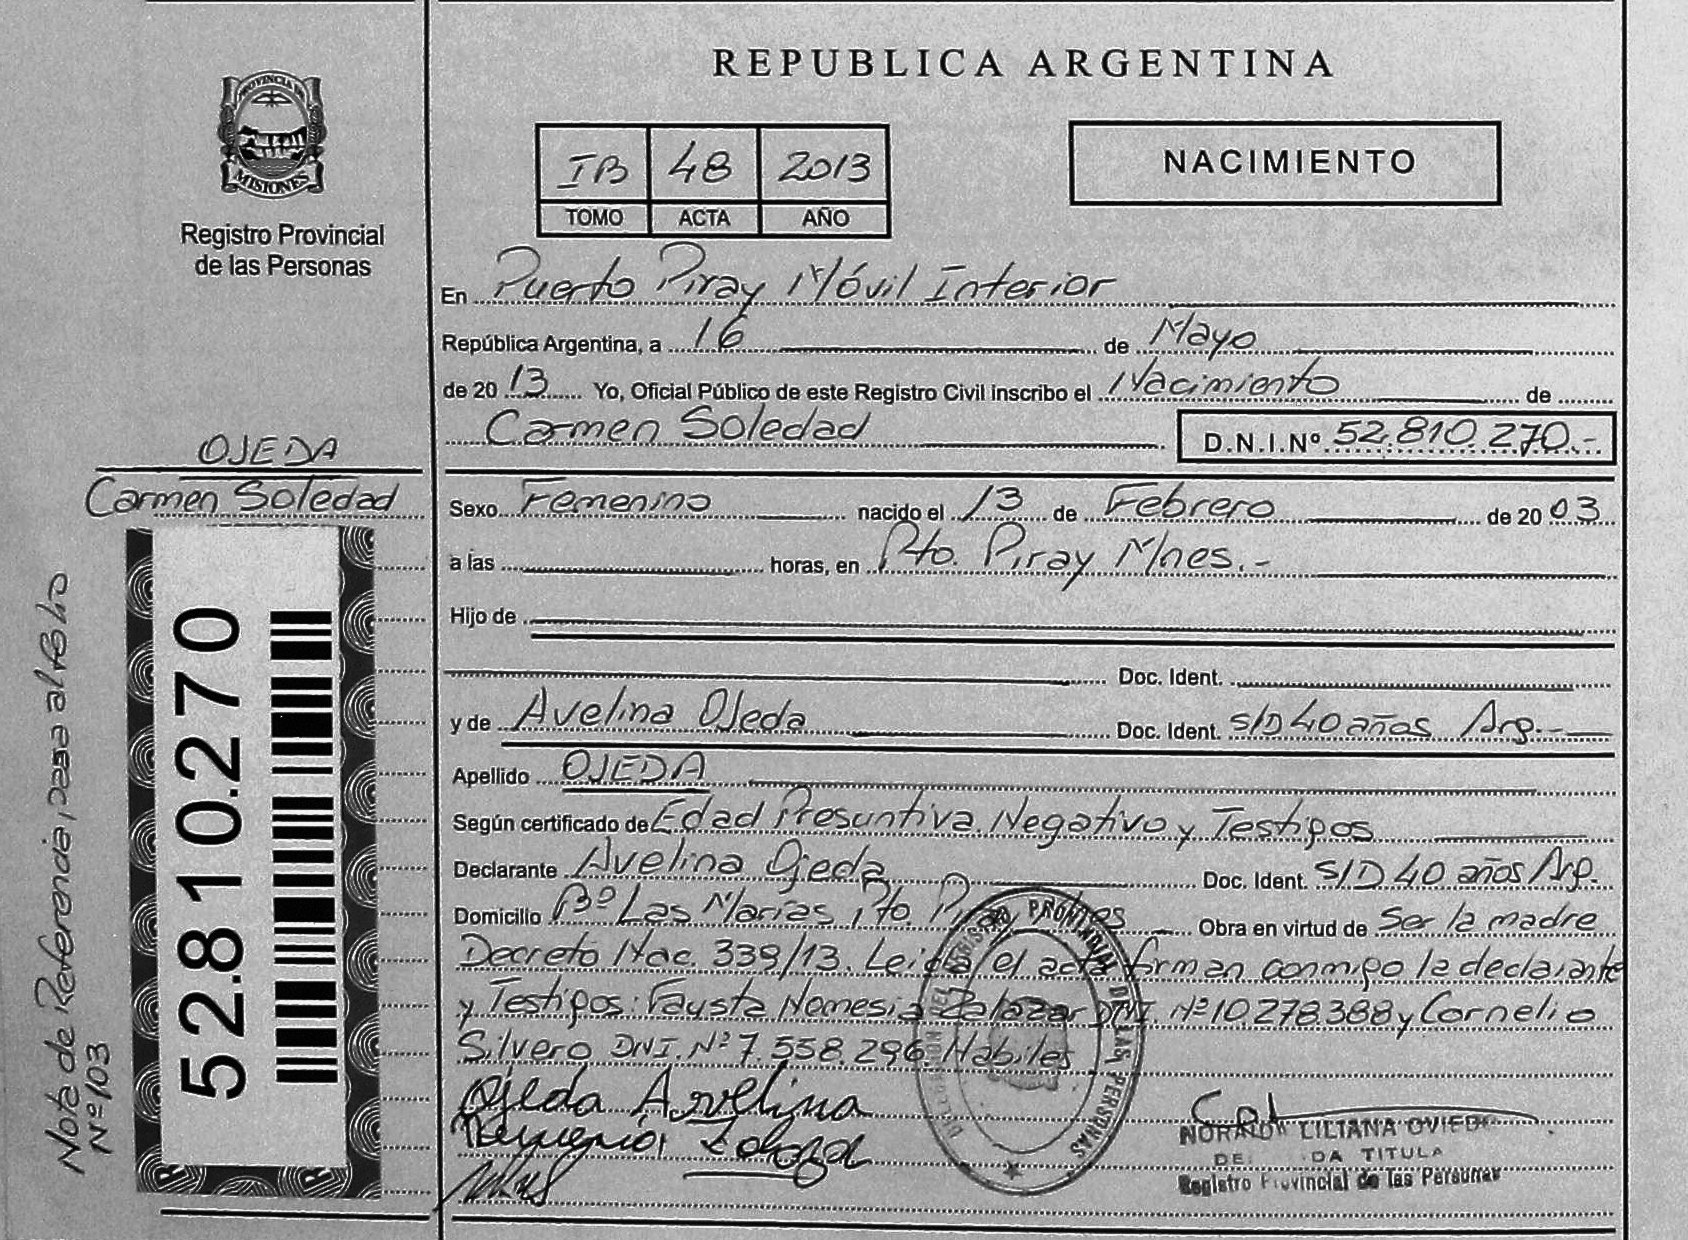 PROVINCIA DE
MISIONES
Registro Provincial
de las Personas
OJEDA
Carmen Soledad
52.810.270
Nota de Referencia, pasa al folio
Nº 103
REPUBLICA ARGENTINA
IB 48 2013
TOMO ACTA AÑO
NACIMIENTO
En Puerto Piray Móvil Interior
República Argentina, a 16 de Mayo
de 2013 Yo, Oficial Público de este Registro Civil inscribo el Nacimiento de
Carmen Soledad D.N.I.Nº 52.810.270.-
Sexo Femenino nacido el 13 de Febrero de 2003
a las horas, en Pto. Piray Mnes.-
Hijo de
Doc. Ident.
y de Avelina Ojeda Doc. Ident. S/D 40 años Arg.-
Apellido OJEDA
Según certificado de Edad Presuntiva. Negativo y Testigos
Declarante Avelina Ojeda Doc. Ident. S/D 40 años Arg.
Domicilio Bº Las Marías Pto. Piray Obra en virtud de Ser la madre
Decreto Nac. 339/13. Leida el acta firman conmigo la declarante
y Testigos: Fausta Nemesia Zalazar DNI. Nº 10.278.388 y Cornelio
Silvero DNI. Nº 7.558.296 Habiles
Ojeda Avelina
REGISTRO PROVINCIAL DE LAS PERSONAS
LILIANA OVIEDO
TITULA
Registro Provincial de las Personas